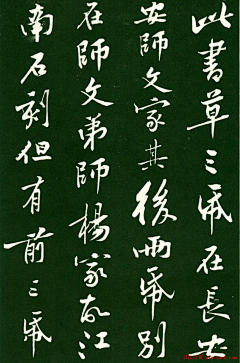 此書草三紙在長
安師文家其後兩紙別
在師文弟師楊家故江
南石刻但有前三紙